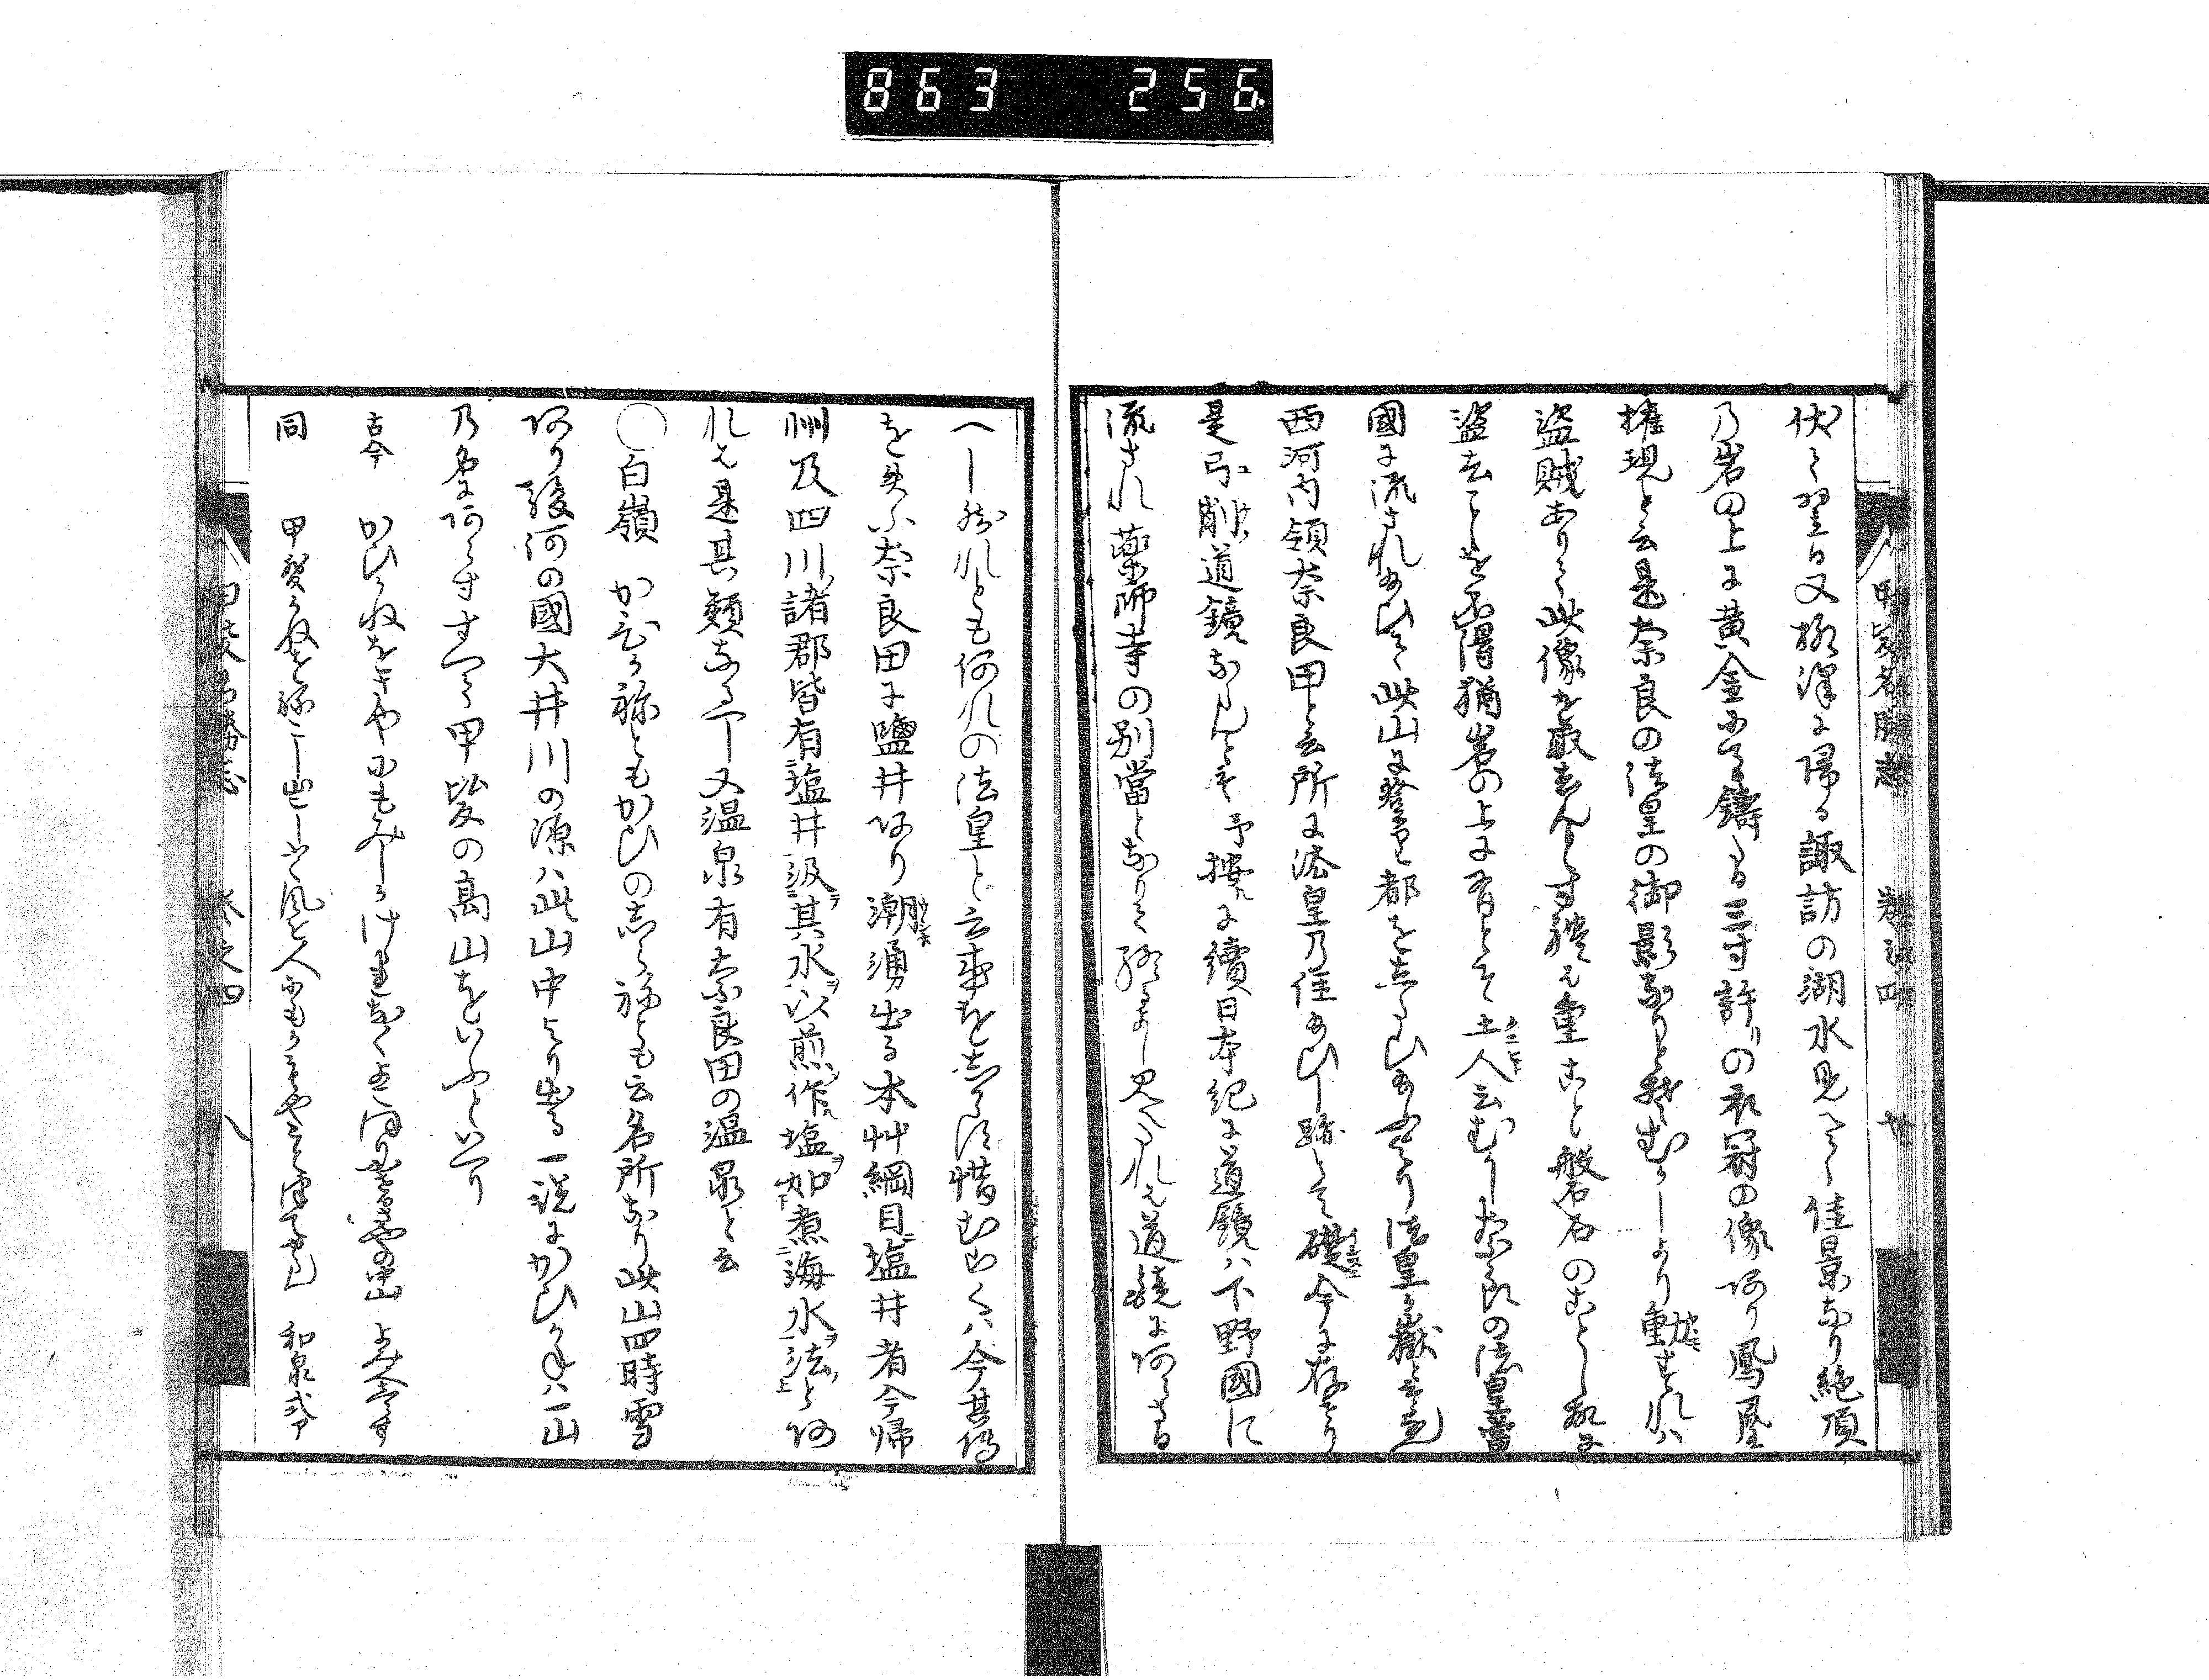 863 256
伏して翌日又柳澤に帰る諏訪の湖水見へて佳景なり絶頂
乃岩の上に黄金にて鋳たる三寸許の衣冠の像あり鳳凰
権現と云是奈良の法皇の御影なりと我むかしより動されハ
盗賊ありて此像を取去んとす甚重こと磐石のことし故に
盗去ことを不得猶岩の上に有とそ土人云むかし奈良の法皇當
國に流され給ひて此山に登り都をしたひ給ふより法皇か嶽と云
西河内領奈良田と云所に法皇乃住給ひし跡とて礎今に存せり
是弓削道鏡ならんと予按に續日本紀に道鏡ハ下野國に
流され薬師寺の別當となりて終るよし見へたれは道鏡にあらさる
へし然れとも何れの法皇と云事をしらす惜むらくハ今其傳
を失ふ奈良田に鹽井あり潮湧出る本艸綱目塩井者今帰
州及四川諸郡皆有塩井汲其水以煎作塩如煮海水法とあ
れは是其類なるへし又温泉有奈良田の温泉と云
○白嶺 かひか祢ともかひのしら祢とも云名所なり此山四時雪
あり駿河の國大井川の源ハ此山中より出る一説にかひかねハ一山
乃名にあらすすへて甲斐の高山をいふといへり
古今 かひかねをさやにもみしかけゝれなくよこほりふせるさやの中山 よみ人しらす
同 甲斐かねを祢こし山こし吹風を人にもかもやことつてやらん 和泉式部
甲斐名勝志 巻之四 七
甲斐名勝志 巻之四 八